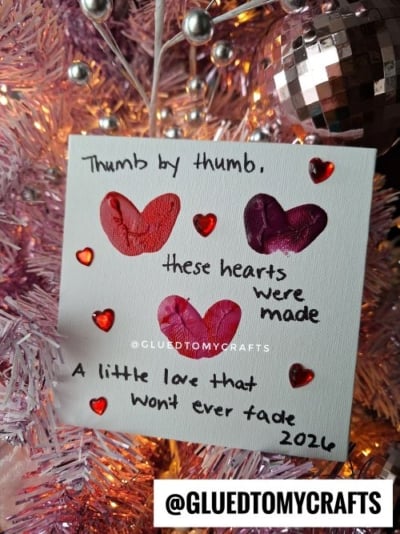 Thumb by thumb,
these hearts
were
made
@GLUEDTOMYCRAFTS
A little love that
won't ever fade
2026
@GLUEDTOMYCRAFTS